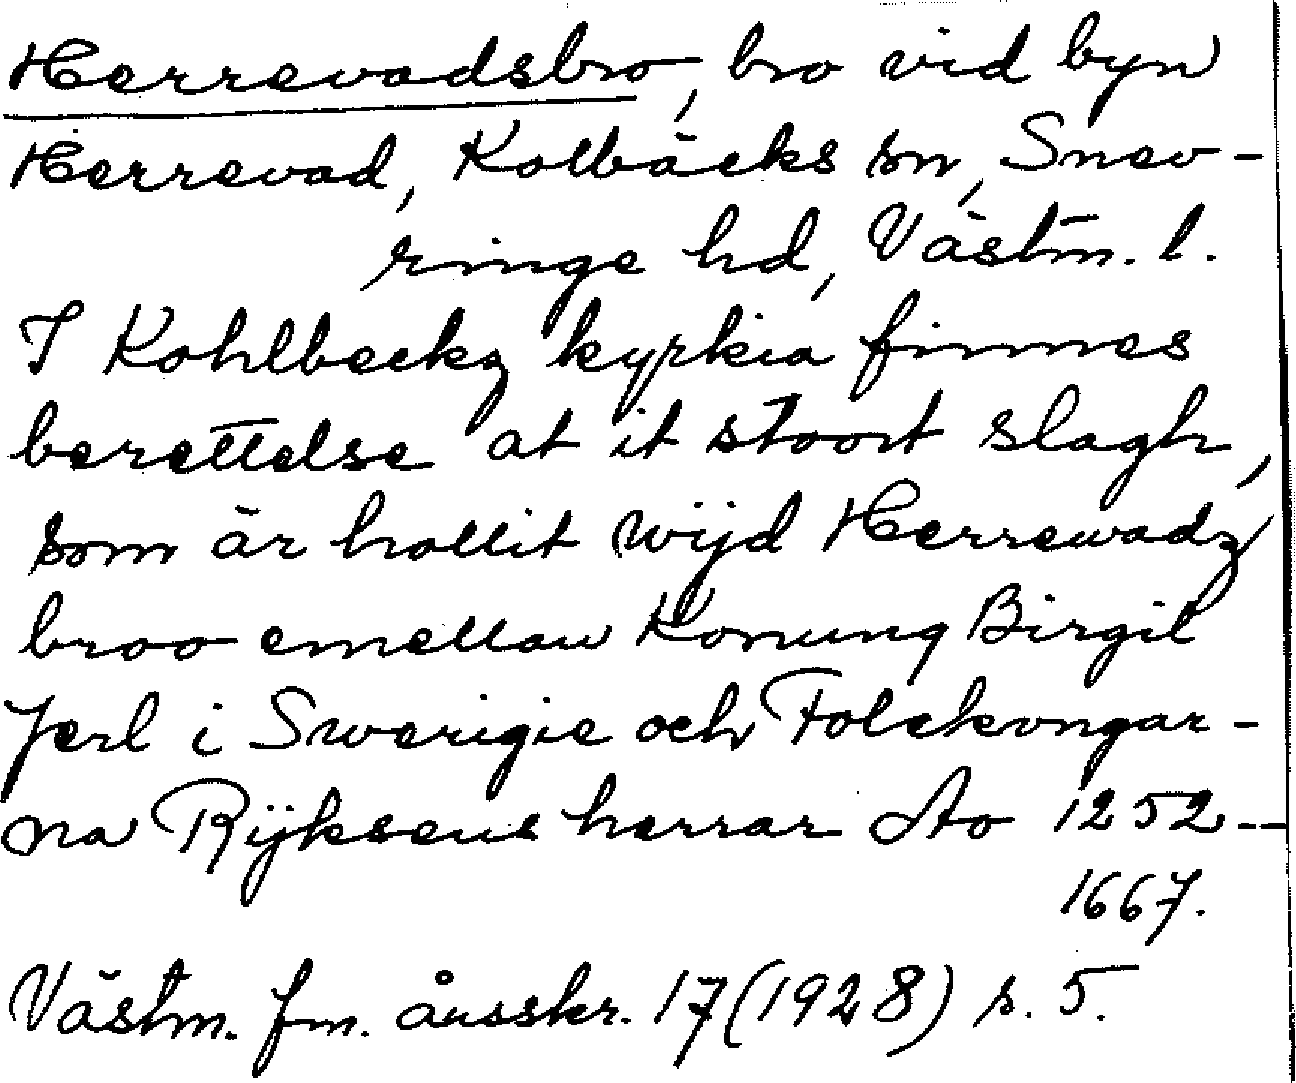 Herrevadsbro, bro vid byn
Herrevad, Kolbäcks sn, Snev-
ringe hd, Västm. l.
I Kohlbeckz kyrkia finnes
berettelse at it stoort slagh,
som är hollit wijd Herrewadz
broo emellan Konung Birgil
Jerl i Swerigie och Folckvngar-
na Rijksens herrar Ao 1252--
1667.
Västm. fm. årsskr. 17 (1928) s. 5.